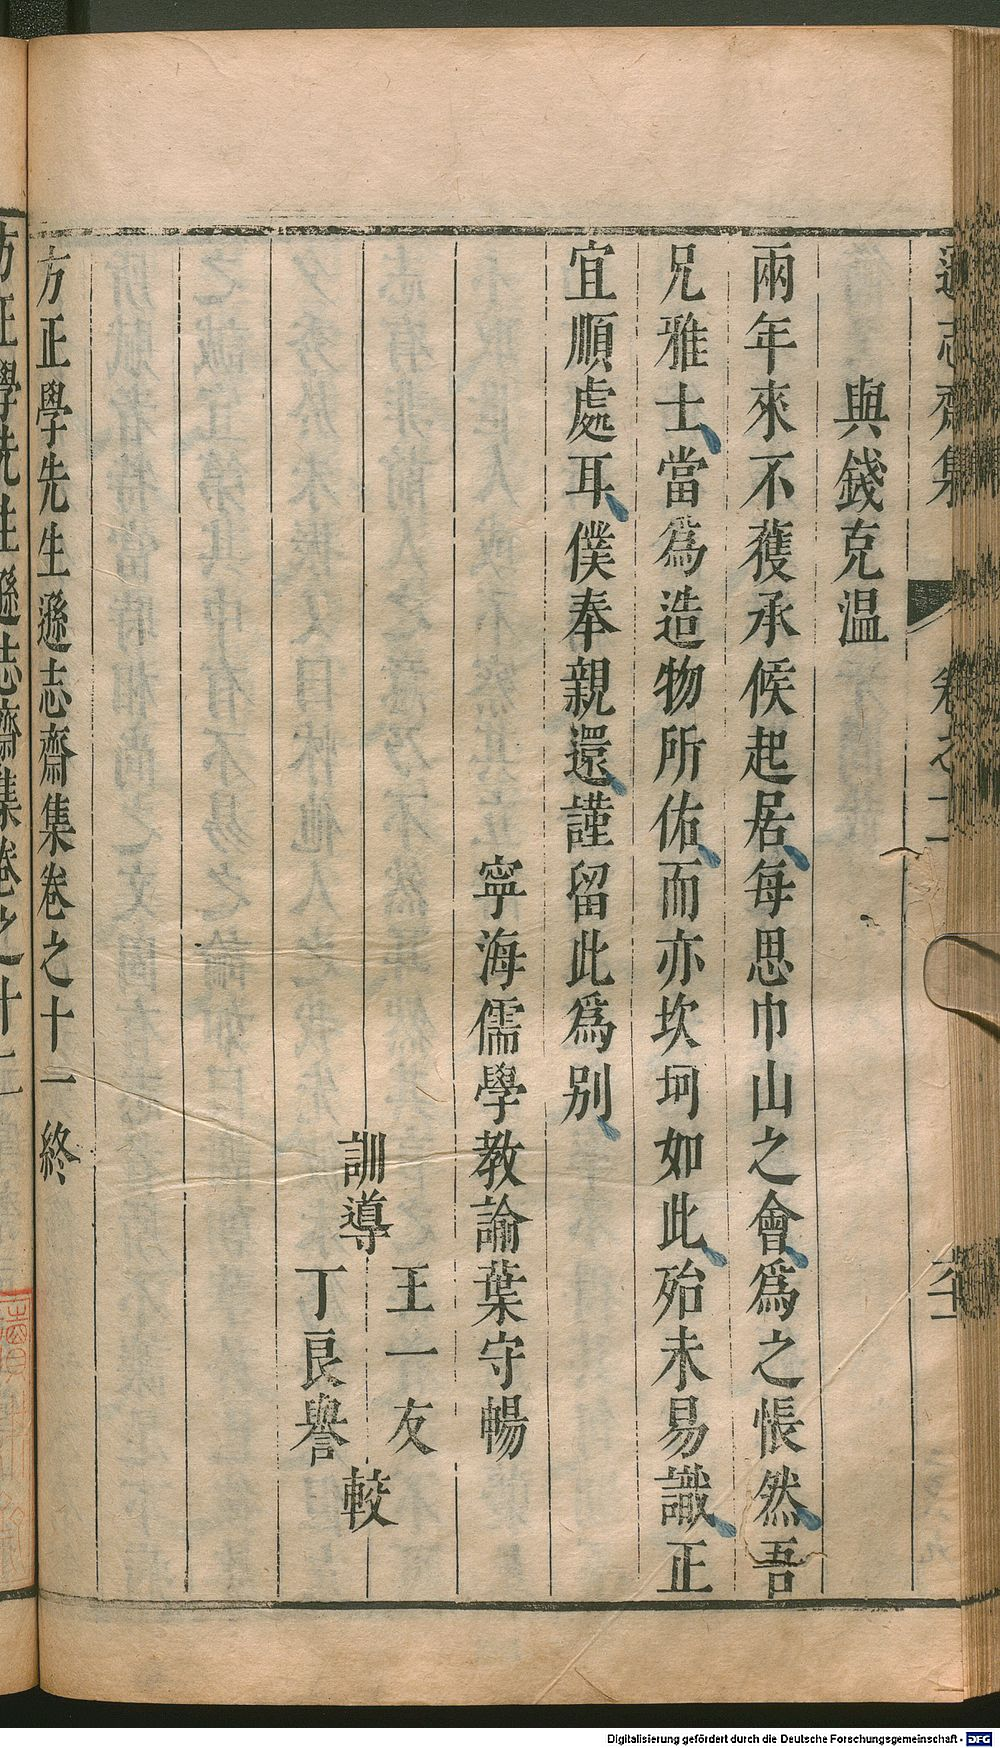 遜志齋集
卷之十一
與錢克温
兩年來不獲承候起居每思巾山之會爲之悵然吾
兄雅士當爲造物所佑而亦坎坷如此殆未易識正
宜順處耳僕奉親還謹留此爲別
寧海儒學教諭葉守暢
訓導
王一友
丁良譽
較
方正學先生遜志齋集卷之十一終
方正學先生遜志齋集卷之十二
Digitalisierung gefördert durch die Deutsche Forschungsgemeinschaft - DFG